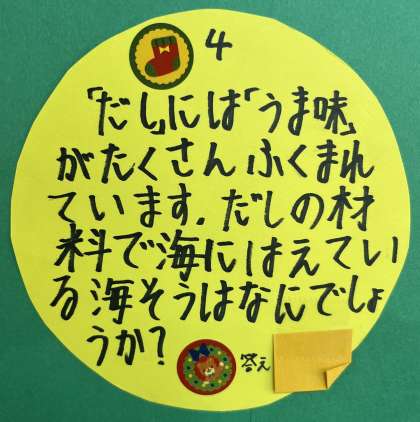 4
「だし」には「うま味」
がたくさんふくまれ
ています。だしの材
料で海にはえてい
る海そうはなにでしょ
うか?
答え